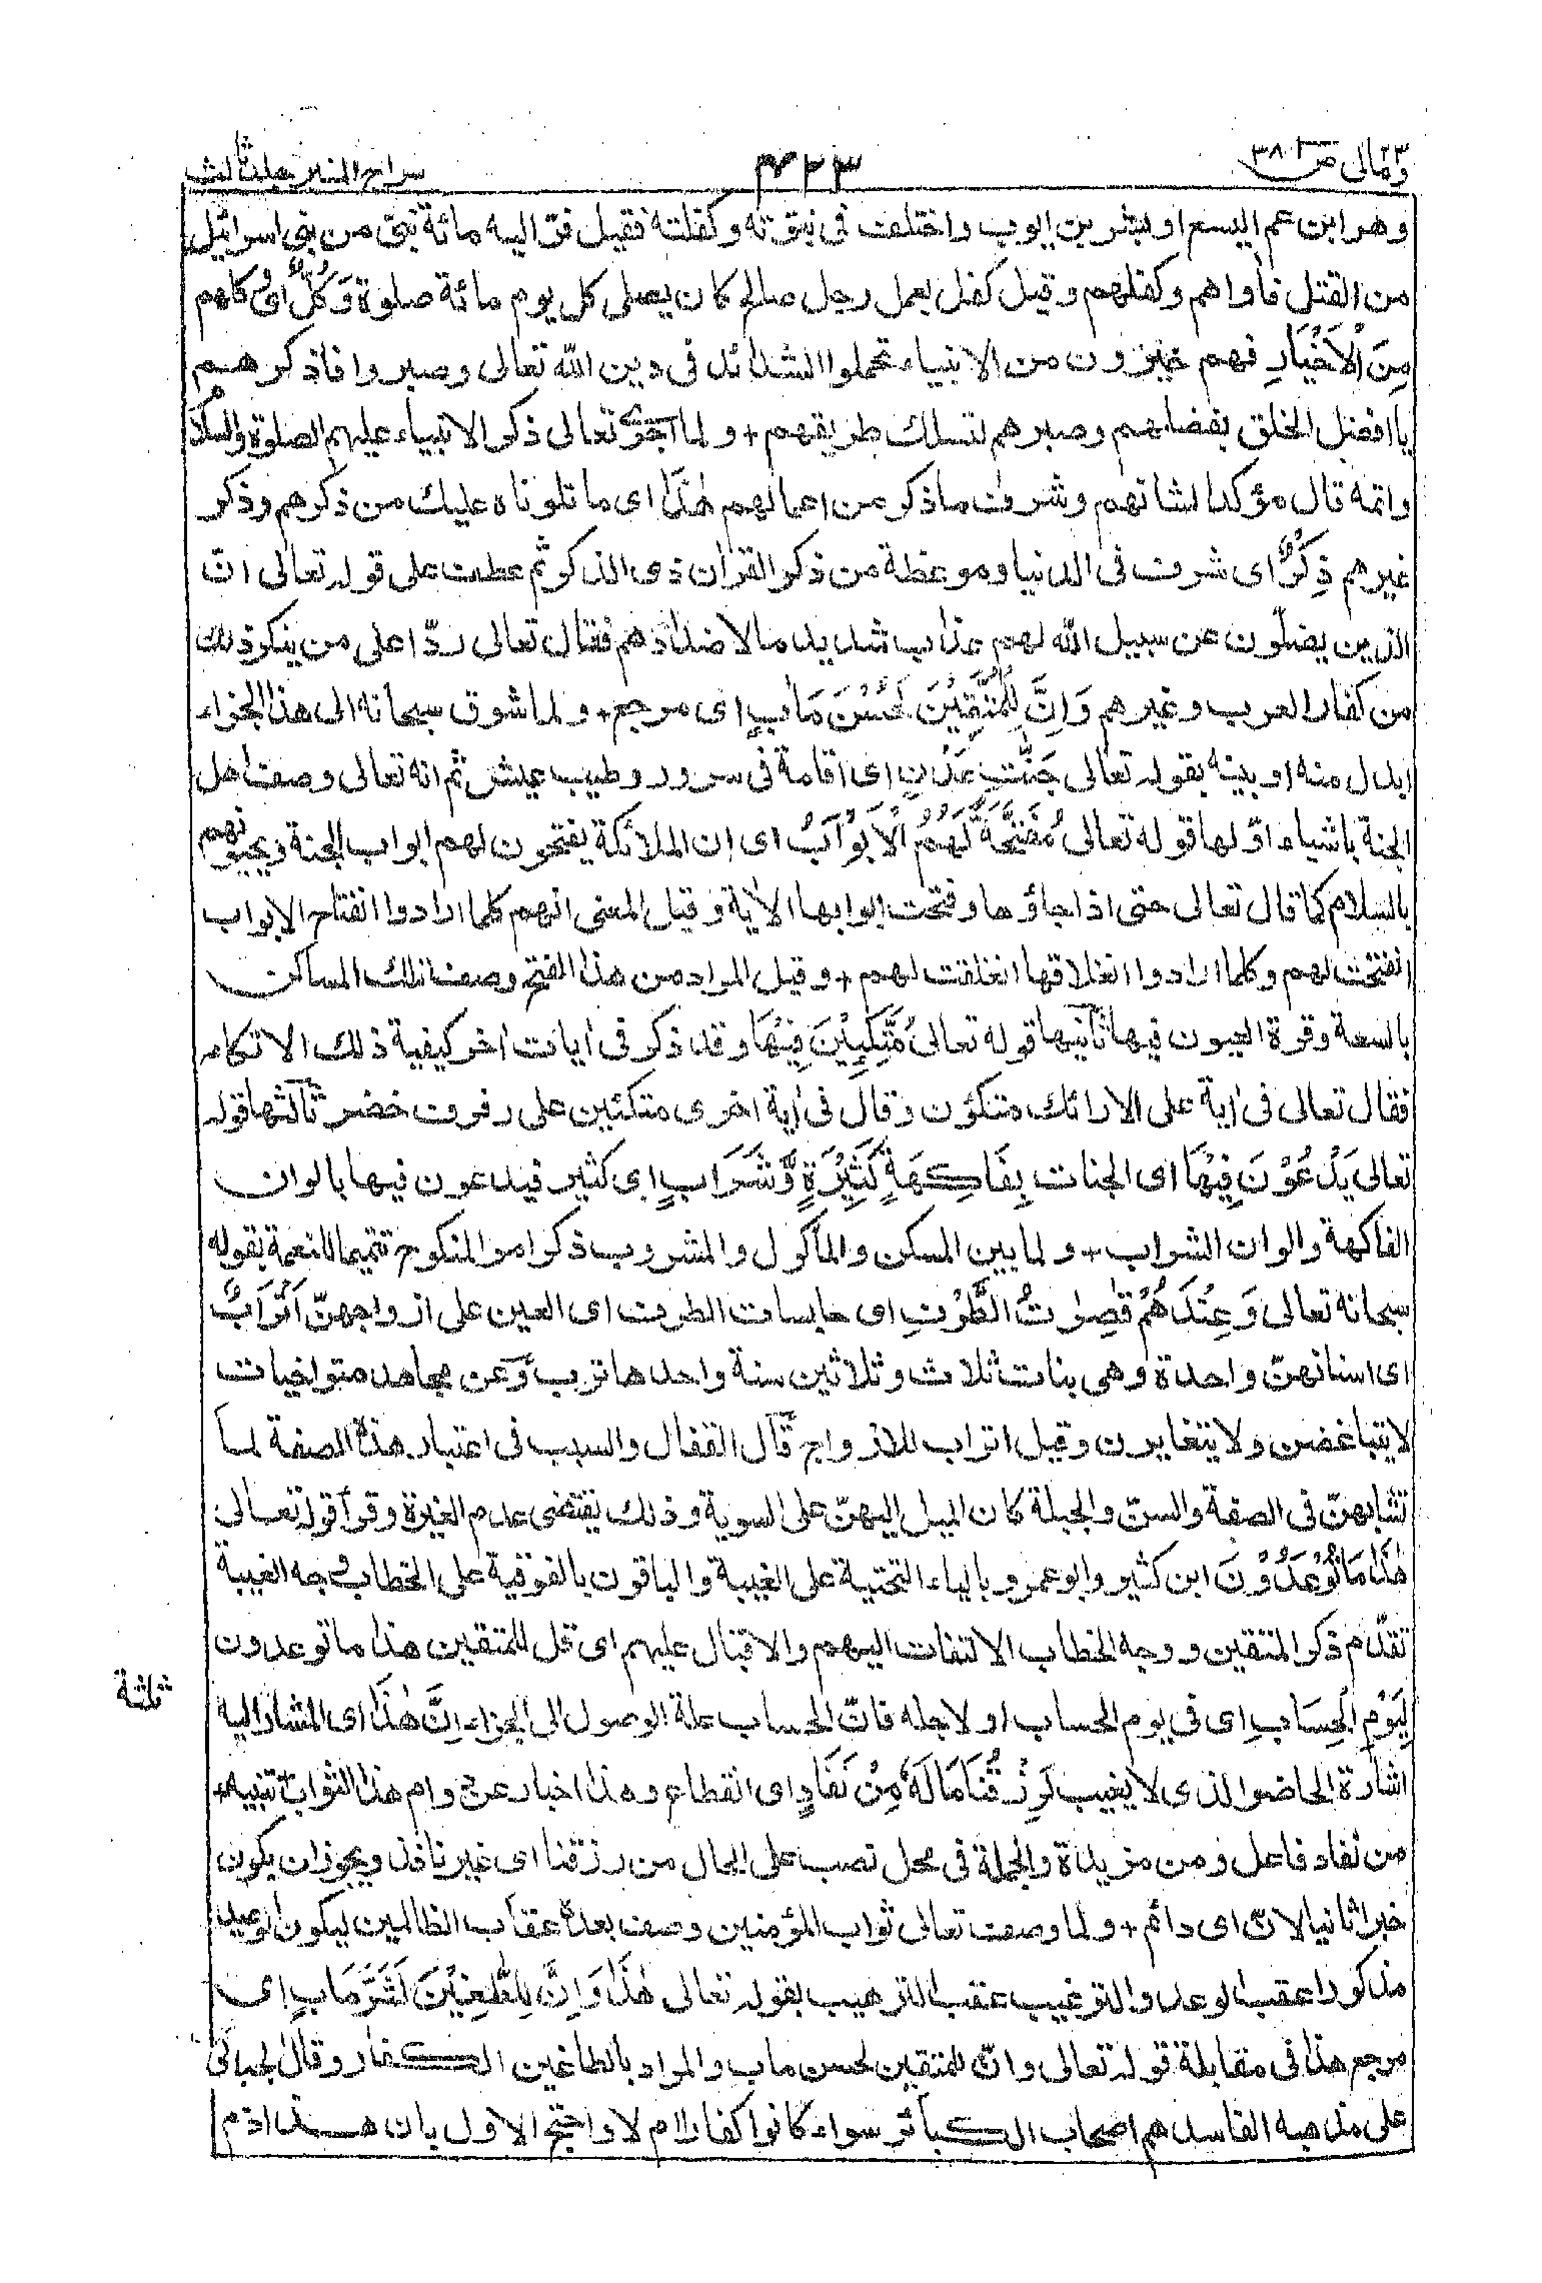 ومالی ٢٣ ص ٣٨
٤٢٣
سراج المنیر جلد ثالث
وهو ابن عم اليسع او بشر بن ايوب واختلف فى نبوّته وكفلته فقيل فرّ اليه مائة نبىّ من بنى اسرائيل
من القتل فاواهم وكفلهم وقيل كفل بعمل رجل صالح كان يصلى كل يوم مائة صلوة وَكُلٌّ اى كلهم
مِنَ الْاَخْيَارِ فهم خيّرون من الانبياء تحملوا الشدائد فى دين الله تعالى وصبروا فاذكرهم
يا افضل الخلق بفضلهم وصبرهم لتسلك طريقهم + ولما اجرى تعالى ذكر الانبياء عليهم الصلوة والسلام
واتمه قال مؤكدا لشانهم وشرف ما ذكر من اعمالهم هٰذَا اى ما تلوناه عليك من ذكرهم وذكر
غيرهم ذِكْرٌ اى شرف فى الدنيا وموعظة من ذكر القرأن ذى الذكر ثم عطف على قوله تعالى انّ
الذين يضلّون عن سبيل الله لهم عذاب شديد ما لاضدادهم فقال تعالى ردّا على من ينكر ذلك
من كفار العرب وغيرهم وَاِنَّ لِلْمُتَّقِيْنَ لَحُسْنَ مَاٰبٍ اى مرجع + ولما شوق سبحانه الى هذا الجزاء
ابدل منه او بينه بقوله تعالى جَنّٰتِ عَدْنٍ اى اقامة فى سرور وطيب عيش ثم انه تعالى وصف اهل
الجنة باشياء اوّلها قوله تعالى مُفَتَّحَةً لَّهُمُ الْاَبْوَابُ اى ان الملائكة يفتحون لهم ابواب الجنة ويحيّونهم
بالسلام كما قال تعالى حتى اذا جاؤها وفتحت ابوابها الاٰية وقيل المعنى انهم كلما ارادوا انفتاح الابواب
انفتحت لهم وكلما ارادوا انغلاقها انغلقت لهم + وقيل المراد من هذا الفتح وصف تلك المساكن
بالسعة وقرة العيون فيها ثانيها قوله تعالى مُتَّكِـِٕيْنَ فِيْهَا وقد ذكر فى ايات اخر كيفية ذلك الاتكاء
فقال تعالى فى اٰية على الارائك متكؤن وقال فى اٰية اخرى متكئين على رفرف خضر ثالثها قوله
تعالى يَدْعُوْنَ فِيْهَا اى الجنات بِفَاكِهَةٍ كَثِيْرَةٍ وَّشَرَابٍ اى كثير فيدعون فيها بالوان
الفاكهة والوان الشراب + ولما بين المسكن والمأكول والمشروب ذكر امر المنكوح تتميما للنعمة بقوله
سبحانه تعالى وَعِنْدَهُمْ قٰصِرٰتُ الطَّرْفِ اى حابسات الطرف اى العين على ازواجهنّ اَتْرَابٌ
اى اسنانهنّ واحدة وهى بنات ثلاث وثلاثين سنة واحدها ترب وعن مجاهد متواخيات
لا يتباغضن ولا يتغايرن وقيل اتراب للازواج قال القفال والسبب فى اعتبار هذه الصفة لما
تشابهنّ فى الصفة والسنّ والجبلة كان الميل اليهنّ على السوية وذلك يقتضى عدم الغيرة وقرأ قوله تعالى
هٰذَا مَا تُوْعَدُوْنَ ابن كثير وابو عمرو بالياء التحتية على الغيبة والباقون بالفوقية على الخطاب وجه الغيبة
تقدّم ذكر المتقين ووجه الخطاب الالتفات اليهم والاقبال عليهم اى قل للمتقين هذا ما توعدون
لِيَوْمِ الْحِسَابِ اى فى يوم الحساب او لاجله فانّ الحساب علة الوصول الى الجزاء اِنَّ هٰذَا اى المشار اليه
ثلثة
اشارة الحاضر الذى لا يغيب لَرِزْقُنَا مَا لَهٗ مِنْ نَفَادٍ اى انقطاع وهذا اخبار عن دوام هذا الثواب تنبيه +
من نفاد فاعل ومن مزيدة والجملة فى محل نصب على الحال من رزقنا اى غير نافذ ويجوز ان يكون
خبرا ثانيا لانّ اى دائم + ولما وصف تعالى ثواب المؤمنين وصف بعده عقاب الظالمين ليكون الوعيد
مذكورا عقب الوعد والترغيب عقب الترهيب بقوله تعالى هٰذَا وَاِنَّ لِلطّٰغِيْنَ لَشَرَّ مَاٰبٍ اى
مرجع هذا فى مقابلة قوله تعالى وانّ للمتقين لحسن ماب والمراد بالطاغين الكفار وقال الجبائى
على مذهبه الفاسد هم اصحاب الكبائر سواء كانوا كفارا ام لا واحتج الاول بان هذا ذم